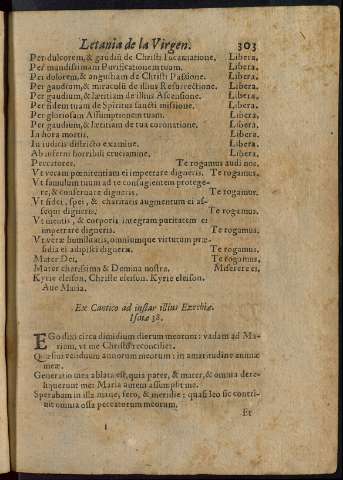 Letania de la Virgen. 303
Per dulcorem, & gaudiū de Christi Incarnatione. Libera.
Per mundissimam Purificationem tuam. Libera.
Per dolorem, & angustiam de Christi Passione. Libera.
Per gaudium, & miraculū de illius Resurrectione. Libera.
Per gaudium, & lætitiam de illius Ascensione. Libera.
Per fidem tuam de Spiritus sancti missione. Libera.
Per gloriosam Assumptionem tuam. Libera.
Per gaudium, & lætitiam de tua coronatione. Libera.
In hora mortis. Libera.
In iudicis districto examine. Libera.
Ab inferni horribili cruciamine. Libera.
Peccatores. Te rogamus audi nos.
Vt veram pœnitentiam ei impetrare digneris. Te rogamus.
Vt famulum tuum ad te confugientem protege-
re, & conseruare digneris. Te rogamus.
Vt fidei, spei, & charitatis augmentum ei as-
sequi digneris. Te rogamus.
Vt mentis, & corporis integram puritatem ei
impetrare digneris. Te rogamus.
Vt veræ humilitatis, omniumque virtutum præ-
sidia ei adipisci digneris. Te rogamus.
Mater Dei. Te rogamus.
Mater charissima & Domina nostra. Miserere ei.
Kyrie eleison. Christe eleison. Kyrie eleison.
Aue Maria.
Ex Cantico ad instar illius Ezechiæ.
Isaiæ 38.
EGo dixi circa dimidium dierum meorum: vadam ad Ma-
riam, vt me Christo reconciliet.
Quæsiui residuum annorum meorum: in amaritudine animæ
meæ.
Generatio mea ablata est, quia pater, & mater, & omnia dere-
liquerunt me: Maria autem assumpsit me.
Sperabam in illa mane, sero, & meridie: quasi leo sic contri-
uit omnia ossa peccatorum meorum.
Et